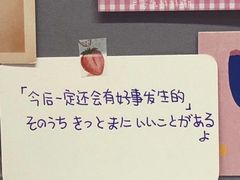 「今后一定还会有好事发生的」
そのうち きっと まに いいことがある
よ